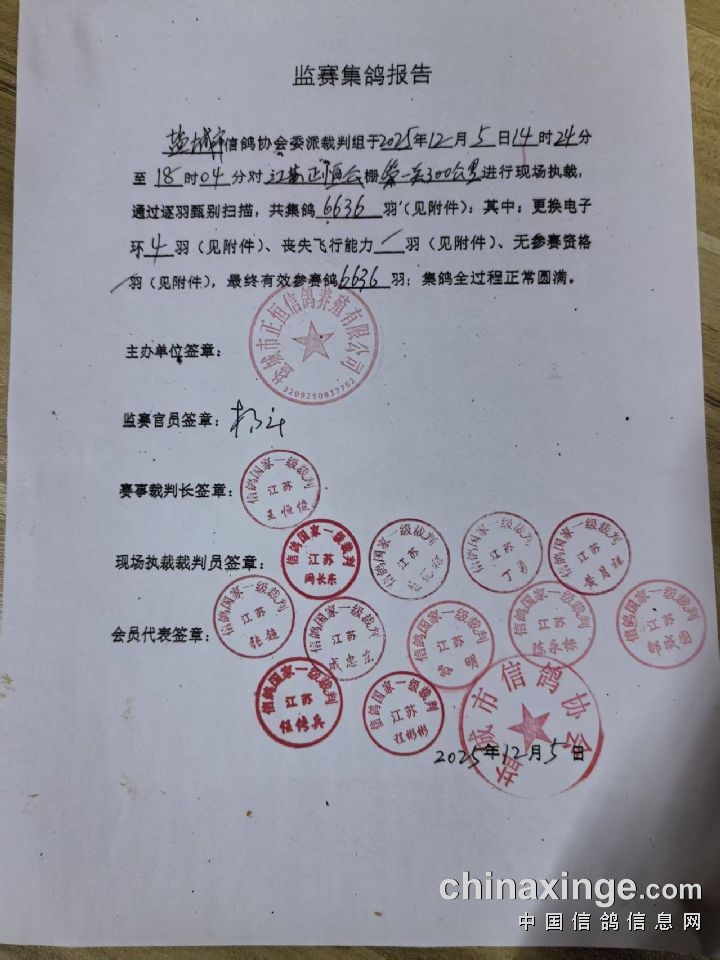 监赛集鸽报告
盐城市信鸽协会委派裁判组于2025年12月5日14时24分
至18时04分对江苏正恒公棚第一关300公里进行现场执裁,
通过逐羽甄别扫描,共集鸽6636羽(见附件):其中:更换电子
环4羽(见附件)、丧失飞行能力/羽(见附件)、无参赛资格
/羽(见附件),最终有效参赛鸽6636羽;集鸽全过程正常圆满。
主办单位签章:
盐城市正恒信鸽养殖有限公司
3209250937762
监赛官员签章:
赛事裁判长签章:
信鸽国家一级裁判
江苏
王恒俊
现场执裁裁判员签章:
信鸽国家一级裁判
江苏
周长东
信鸽国家一级裁判
江苏
信鸽国家一级裁判
江苏
丁勇
信鸽国家一级裁判
江苏
会员代表签章:
信鸽国家一级裁判
江苏
张超
信鸽国家一级裁判
江苏
成忠东
信鸽国家一级裁判
江苏
信鸽国家一级裁判
江苏
陈永标
信鸽国家一级裁判
江苏
郭成国
信鸽国家一级裁判
江苏
伍传兵
信鸽国家一级裁判
江苏
程彬彬
盐城市信鸽协会
2025年12月5日
chinaxinge.com
中国信鸽信息网